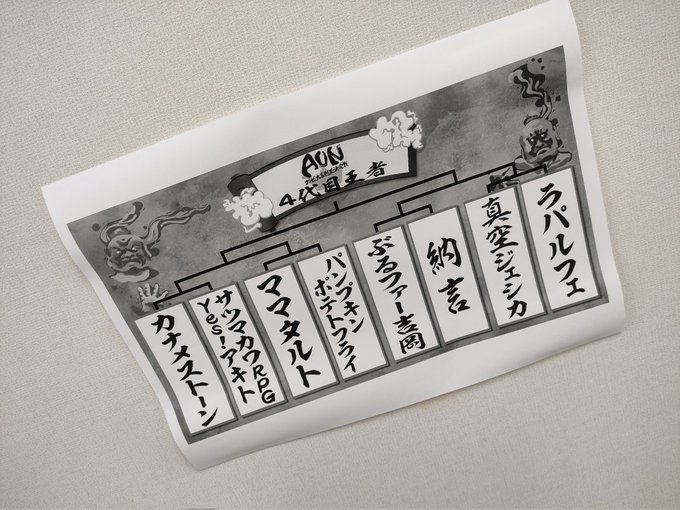 AUN
4代目王者
カナメストーン
サツマカワRPG
Yes!アキト
ママタルト
パンプキン
ポテトフライ
ぶるファー吉岡
納言
真空ジェシカ
ラパルフェ